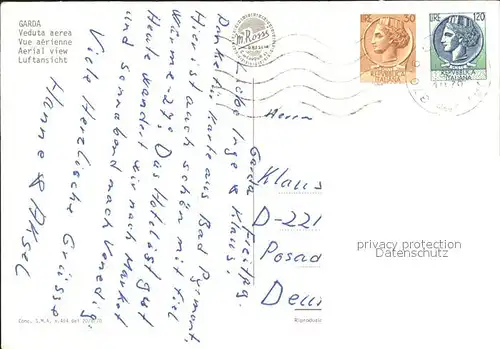 GARDA
Veduta aerea
Vue aérienne
Aerial view
Luftansicht
LIRE 30
REPVBBLICA
ITALIANA
LIRE 120
REPVBBLICA
ITALIANA
Garda Freitag.
Liebe Inge & Klaus!
Dank für Karte aus Bad Pyrmont.
Hier ist auch schön mit viel
Wärme - 27°. Das Hotel ist gut
Heute wandert wir nach Markt
und Sonnabend nach Venedig.
Viele Herzlische Grüsse
Hanne & Aksel
Herrn
Klaus
D-221
Posad
Deu
privacy protection
Datenschutz
Conc. S.M.A. n. 404 del
Riproduzio